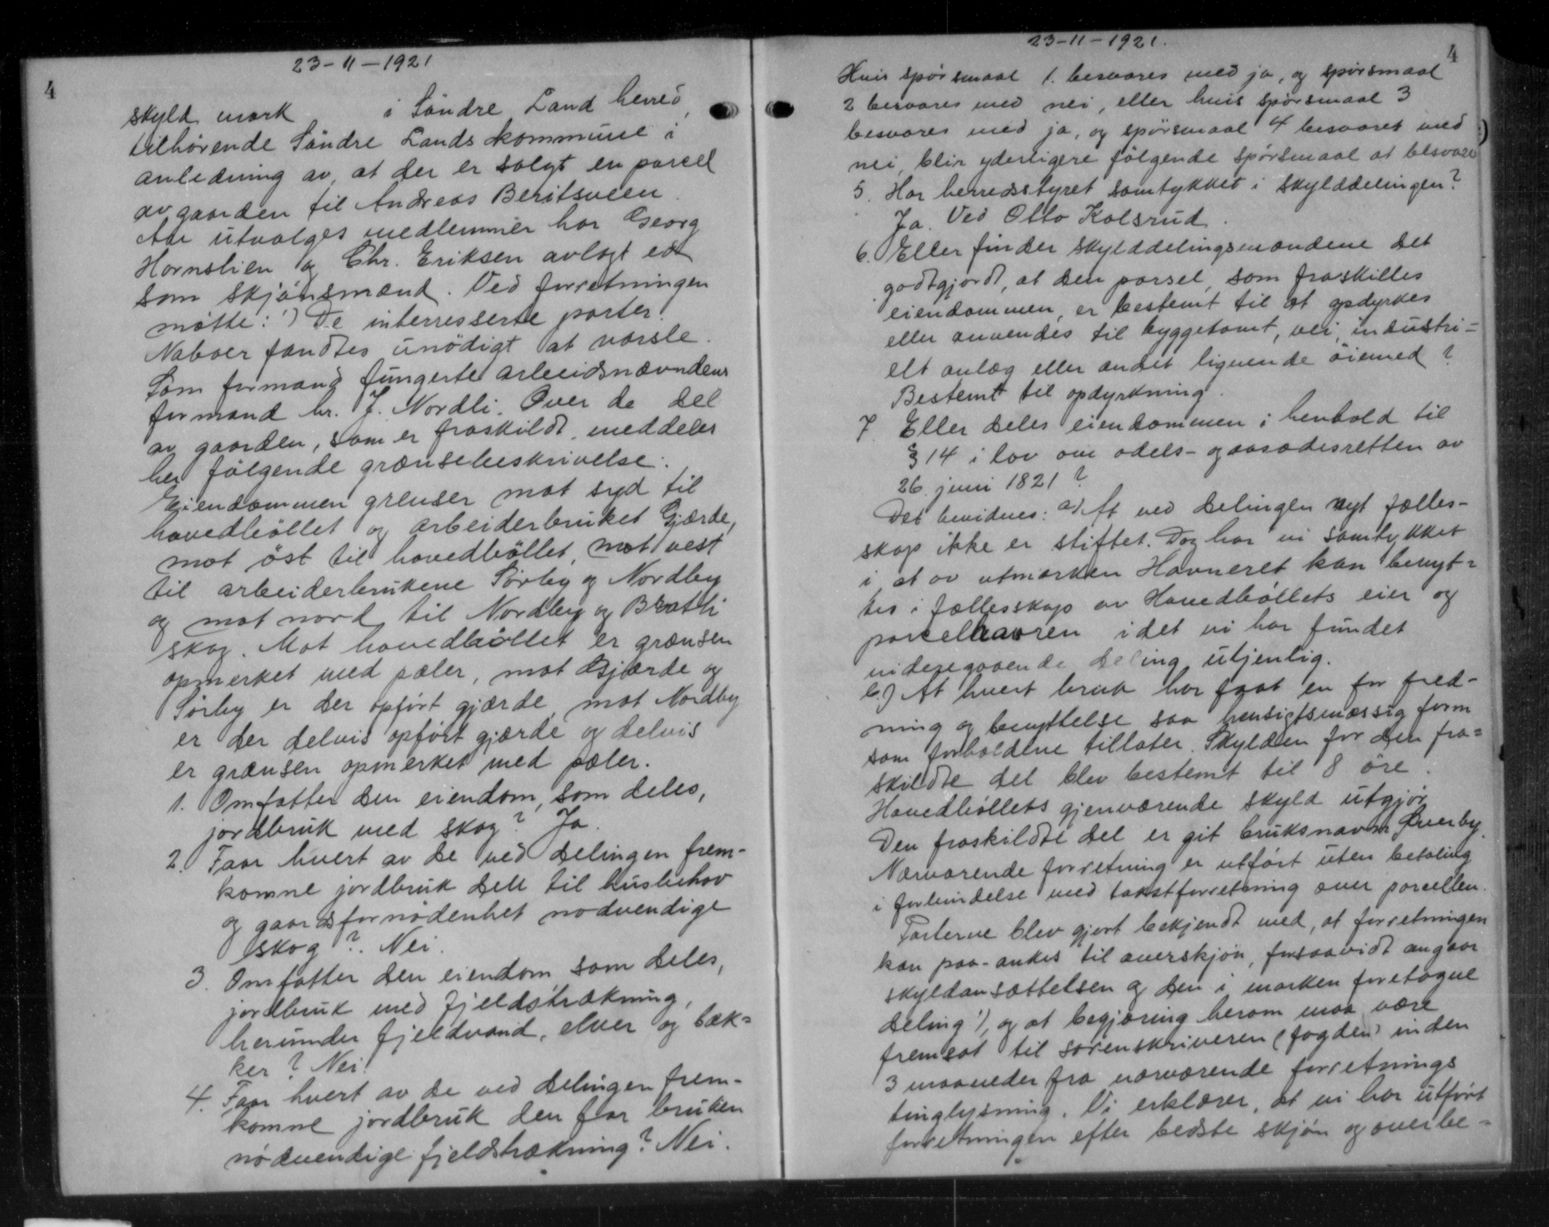 4
23-11-1921
skyld mark i Söndre Land herred,
tilhörende Söndre Lands kommune i
anledning av, at der er solgt en parcel
av gaarden til Andreas Beritsveen.
Av utvalges medlemmer har Georg
Hornslien og Chr. Eriksen avlagt ed
som skjönsmænd. Ved forretningen
mötte: 1) De interresserte parter.
Naboer fandtes unödigt at varsle.
Som formand fungerte arbeidsnævndens
formand hr. J. Nordli. Over de del
av gaarden, som er fraskildt, meddeles
her følgende grænsebeskrivelse:
Eiendommen grenser mot syd til
hovedbøllet og arbeiderbruket Gjærde,
mot öst til hovedböllet, mot vest
til arbeiderbrukene Sørby og Nordby
og mot nord til Nordby og Bratli
skog. Mot hovedböllet er grænsen
opmerket med pæler, mot Gjærde og
Sörby er der opfört gjærde, mot Nordby
er der delvis opfört gjærde og delvis
er grænsen opmerket med pæler.
1. Omfatter den eiendom, som deles,
jordbruk med skog? Ja.
2. Faar hvert av de ved delingen frem-
komne jordbruk dele til husbehov
og gaardsfornödenhet nodvendige
skog? Nei.
3. Omfatter den eiendom som deles,
jordbruk med fjeldstrækning,
herunder fjeldvand, elver og bæk=
ker? Nei.
4. Faar hvert av de ved delingen frem-
komne jordbruk den for bruken
nödvendige fjeldstrækning? Nei.
23-11-1921.
4
Hvis spörsmaal 1. besvares med ja, og spörsmaal
2 besvares med nei, eller hvis spörsmaal 3
besvares med ja, og spörsmaal 4 besvaret med
nei, blir yderligere fölgende spörsmaal at besvare
5. Har herredsstyret samtykket i skylddelingen?
Ja. Ved Otto Kolsrud.
6. Eller finder skylddelingsmændene det
godtgjordt, at den parsel, som fraskilles
eiendommen, er bestemt til at opdyrkes
eller anvendes til byggetomt, vei, industri=
elt anlæg eller andet lignende öiemed?
Bestemt til opdyrkning.
7. Eller deles eiendommen i henhold til
§ 14 i lov om odels- og aasædesretten av
26. juni 1821?
Det bevidnes: a) At ved delingen nyt fælles-
skap ikke er stiftet. Dog har vi samtykket
i at av utmarken Havneret kan benyt=
tes i fællesskap av Hovedböllets eier og
parcelhaveren idet vi har fundet
videregaaende deling utjenlig.
b) At hvert bruk har faat en for fred-
ning og benyttelse saa hensigtsmæssig form
som forholdene tillater. Skylden for den fra=
skildte del blev bestemt til 8 öre.
Hovedböllets gjenværende skyld utgjör
Den fraskildte del er git bruksnavn Øverby.
Nærværende forretning er utført uten betaling
i forbindelse med takstforretning over parcellen.
Parterne blev gjort bekjendt med, at forretningen
kan paa-ankes til overskjön, forsaavidt angaar
skyldansættelsen og den i marken foretagne
deling 1), og at begjæring herom maa være
fremsat til sorenskriveren (fogden) inden
3 maaneder fra nærværende forretnings
tinglysning. Vi erklærer, at vi har utført
forretningen efter bedste skjön og overbe=